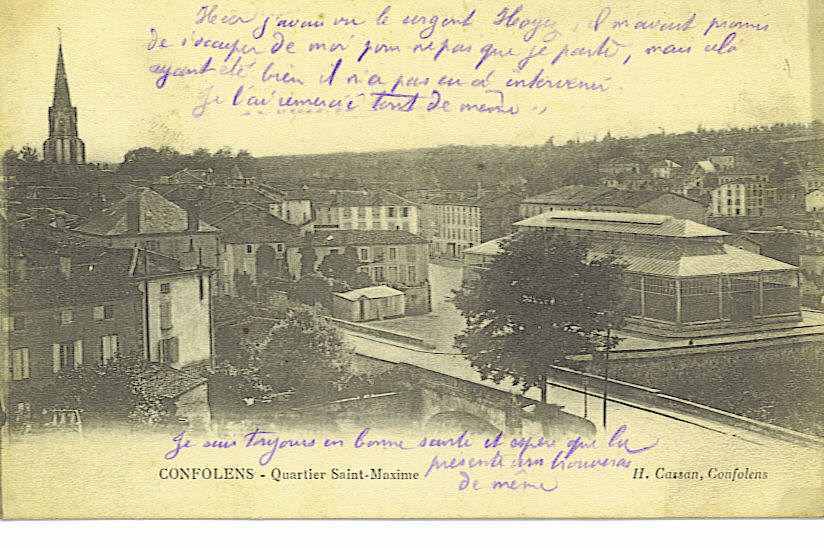 Hier j'avais vu le sergent Hoyez, il m'avait promis
de s'occuper de moi pour ne pas que je parte, mais cela
ayant été bien il n'a pas eu à intervenir.
Je l'ai remercié tout de même.
Je suis toujours en bonne santé et espère que la
présente vous trouveras
de même
CONFOLENS - Quartier Saint-Maxime
H. Cassan, Confolens